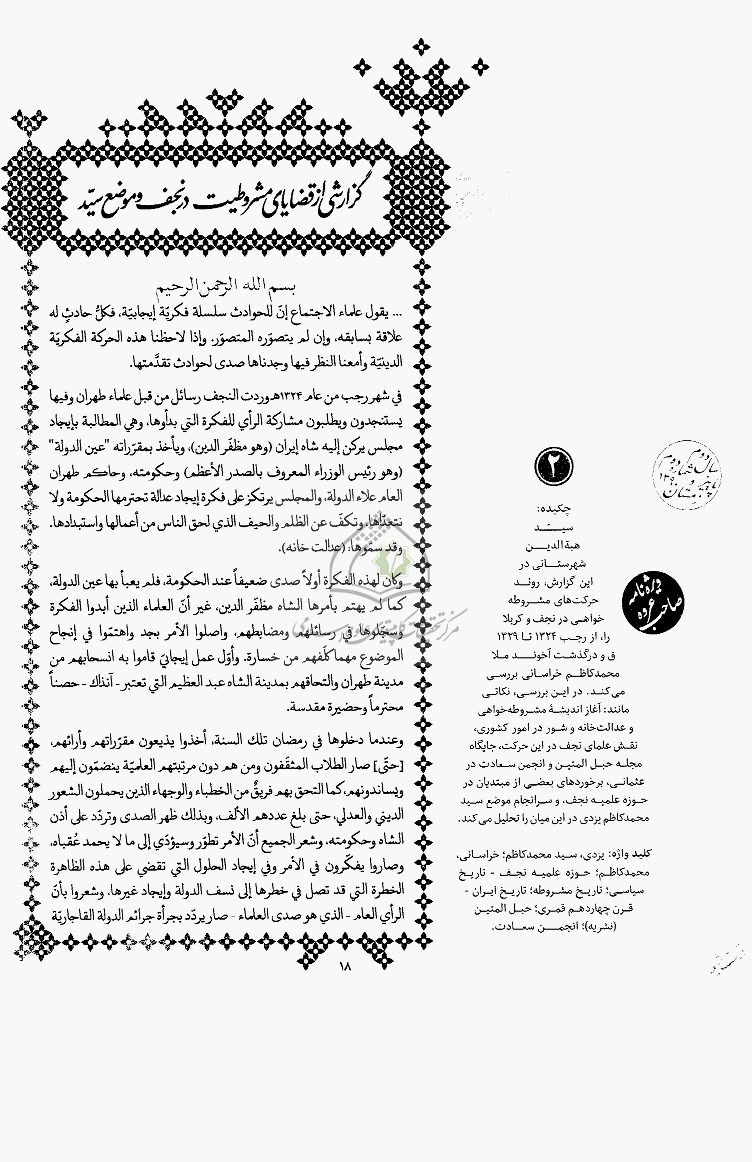 گزارشی از قضایای مشروطیت در نجف و موضع سیّد
بسم الله الرحمن الرحیم
... يقول علماء الاجتماع إنّ للحوادث سلسلة فكريّة إيجابيّة، فكلُّ حادثٍ له
علاقة بسابقه، وإن لم يتصوّره المتصوّر. وإذا لاحظنا هذه الحركة الفكريّة
الدينيّة وأمعنا النظر فيها وجدناها صدى لحوادث تقدَّمتها.
في شهر رجب من عام ۱۳۲۴هـ وردت النجف رسائل من قبل علماء طهران وفيها
يستنجدون ويطلبون مشاركة الرأي للفكرة التي بدأوها، وهي المطالبة بإيجاد
مجلس يركن إليه شاه إيران (وهو مظفّر الدين)، ويأخذ بمقرّراته "عين الدولة"
(وهو رئيس الوزراء المعروف بالصدر الأعظم) وحكومته، وحاكم طهران
العام علاء الدولة. والمجلس يرتكز على فكرة إيجاد عدالة تحترمها الحكومة ولا
تتعدّاها، وتكفّ عن الظلم والحيف الذي لحق الناس من أعمالها واستبدادها.
وقد سمّوها: (عدالت خانه).
وكان لهذه الفكرة أولاً صدى ضعيفاً عند الحكومة، فلم يعبأ بها عين الدولة،
كما لم يهتم بأمرها الشاه مظفّر الدين، غير أنّ العلماء الذين أبدوا الفكرة
وسجّلوها في رسائلهم ومضابطهم، واصلوا الأمر بجد واهتمّوا في إنجاح
الموضوع مهما كلّفهم من خسارة. وأوّل عمل إيجابيّ قاموا به انسحابهم من
مدينة طهران والتحاقهم بمدينة الشاه عبد العظيم التي تعتبر - آنذاك - حصناً
محترماً وحضيرة مقدسة.
وعندما دخلوها في رمضان تلك السنة، أخذوا يذيعون مقرّراتهم وأرائهم،
[حتّى] صار الطلاب المثقّفون ومن هم دون مرتبتهم العلميّة ينضمّون إليهم
ويساندونهم، كما التحق بهم فريقٌ من الخطباء والوجهاء الذين يحملون الشعور
الديني والعدلي، حتى بلغ عددهم الألف، وبذلك ظهر الصدى وتردّد على أذن
الشاه وحكومته، وشعر الجميع أنّ الأمر تطوّر وسيؤدّي إلى ما لا يحمد عُقباه،
وصاروا يفكّرون في الأمر وفي إيجاد الحلول التي تقضي على هذه الظاهرة
الخطرة التي قد تصل في خطرها إلى نسف الدولة وإيجاد غيرها، وشعروا بأنّ
الرأي العام - الذي هو صدى العلماء - صار يردّد بجرأة جرائم الدولة القاجاريّة
۱۸
۲
سال دوم
ویژه نامه
صاحب عروه
چکیده:
سیــد
هبةالدیــن
شهرستانی در
این گزارش، روند
حرکت‌های مشروطه
خواهی در نجف و کربلا
را، از رجب ۱۳۲۴ تا ۱۳۲۹
ق و درگذشت آخوند ملا
محمدکاظم خراسانی بررسی
می‌کند. در این بررسی، نکاتی
مانند: آغاز اندیشۀ مشروطه‌خواهی
و عدالت‌خانه و شور در امور کشوری،
نقش علمای نجف در این حرکت، جایگاه
مجله حبل المتین و انجمن سعادت در
عثمانی، برخوردهای بعضی از مبتدیان در
حوزه علمیه نجف، و سرانجام موضع سید
محمدکاظم یزدی در این میان را تحلیل می‌کند.
کلید واژه: یزدی، سید محمدکاظم؛ خراسانی،
محمدکاظم؛ حوزه علمیه نجف - تاریخ
سیاسی؛ تاریخ مشروطه؛ تاریخ ایران -
قرن چهاردهم قمری؛ حبل المتین
(نشریه)؛ انجمــن سعادت.